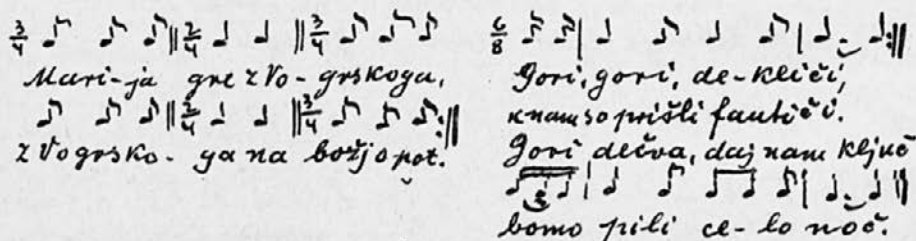 Mari-ja gre z Vo-grskoga,
z Vogrsko-ga na božjo pot.
Gori, gori, de-kliči,
k nam so prišli fantiči.
Gori dečva, daj nam ključ
bomo pili ce-lo noč.